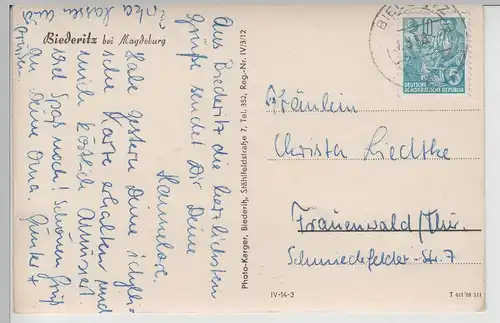 Biederitz bei Magdeburg
Aus Biederitz die herzlichsten
Grüße sendet Dir Deine
Hannelore.
Habe gestern Deine
Karte erhalten und
mich köstlich amüsiert
Viel Spaß noch! Schönen Gruß
an Deine Oma. Günter
lassen auch
grüßen
Photo-Karger, Biederitz, Stählfeldstraße 7, Tel. 352, Reg.-Nr. IV/3/12
BIEDERITZ
10
DEUTSCHE
DEMOKRATISCHE REPUBLIK
5
Fräulein
Christa Liedtke
Frauenwald/Thür.
Schmiedefelder-Str. 7
IV-14-3